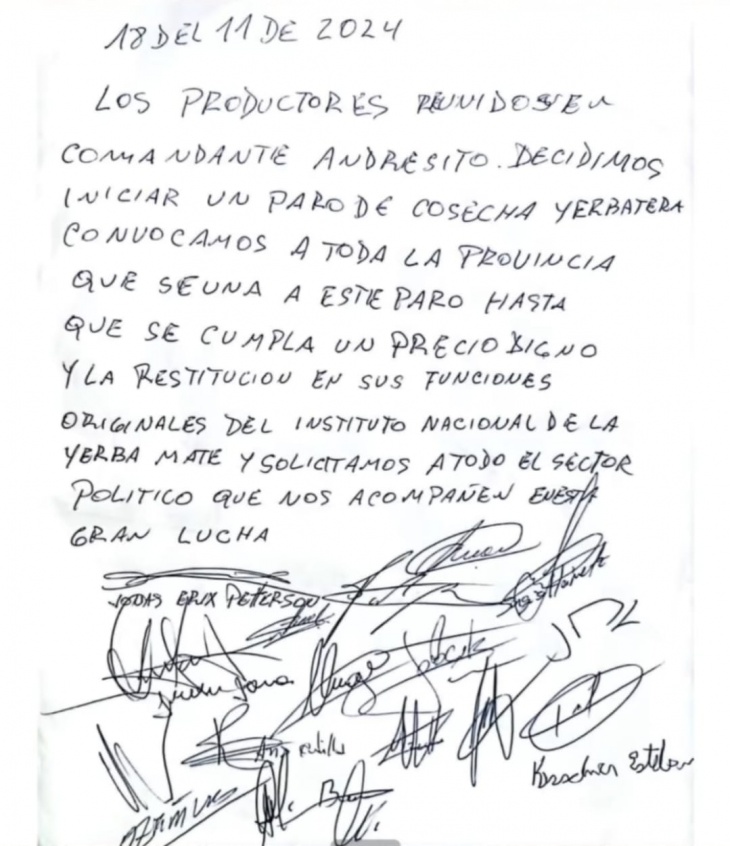 18 DEL 11 DE 2024
LOS PRODUCTORES REUNIDOS EN
COMANDANTE ANDRESITO. DECIDIMOS
INICIAR UN PARO DE COSECHA YERBATERA
CONVOCAMOS A TODA LA PROVINCIA
QUE SE UNA A ESTE PARO HASTA
QUE SE CUMPLA UN PRECIO DIGNO
Y LA RESTITUCION EN SUS FUNCIONES
ORIGINALES DEL INSTITUTO NACIONAL DE LA
YERBA MATE Y SOLICITAMOS A TODO EL SECTOR
POLITICO QUE NOS ACOMPAÑEN EN ESTA
GRAN LUCHA
ERIX PETERSON
Esteban